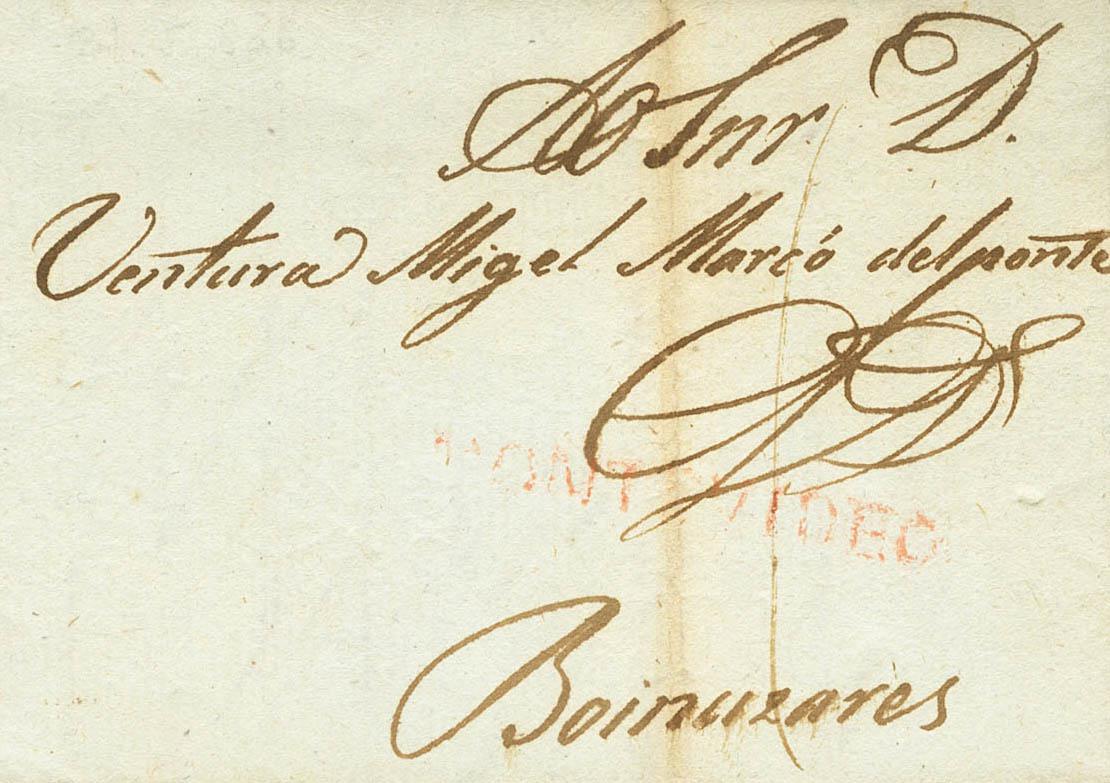 Ao Snr. D.
Ventura Migel Marcó del ponte
MONTEVIDEO
Boinuzares